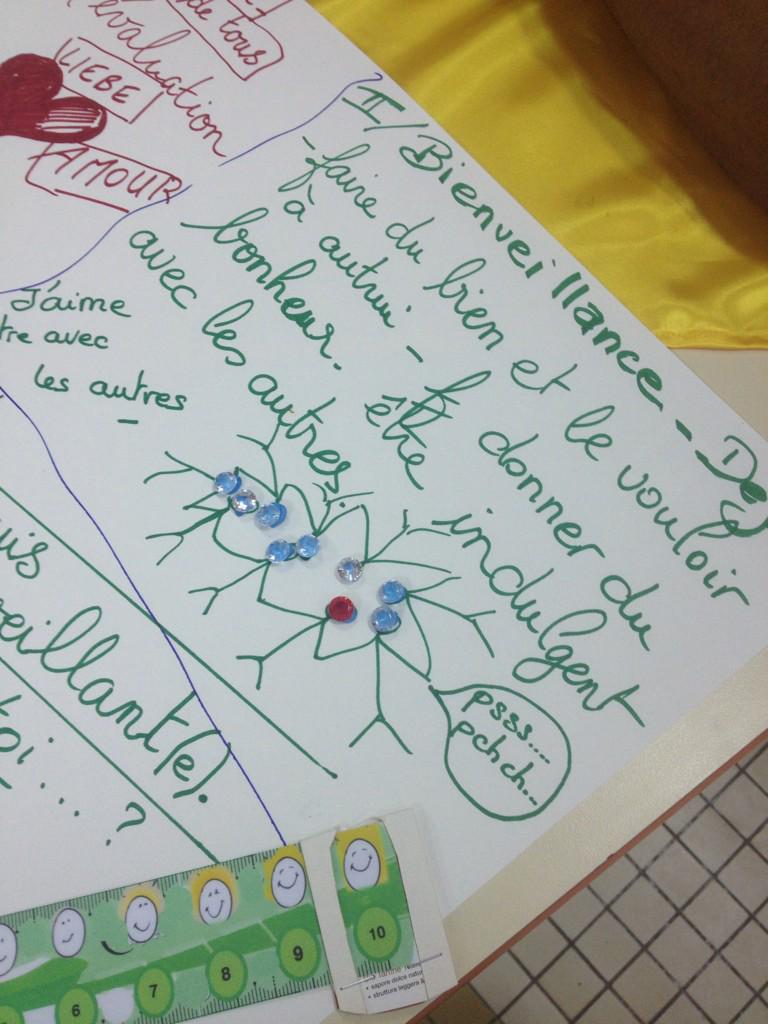 de tous
évaluation
LIEBE
AMOUR
II/ Bienveillance - Dé
- faire du bien et le vouloir
à autrui - donner du
bonheur. être indulgent
avec les autres.
J'aime
tre avec
les autres
psss....
pchch...
uis
veillant(e).
toi .... ?
6 7 8 9 10
sapore dolce natur
struttura leggera